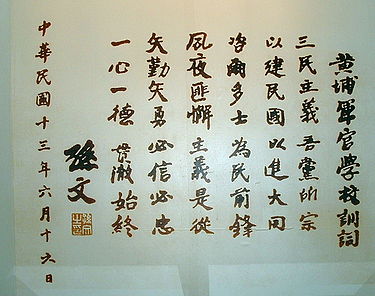 黃埔軍官學校訓詞
三民主義 吾黨所宗
以建民國 以進大同
咨爾多士 為民前鋒
夙夜匪懈 主義是從
矢勤矢勇 必信必忠
一心一德 貫澈始終
孫文
中華民國十三年六月十六日